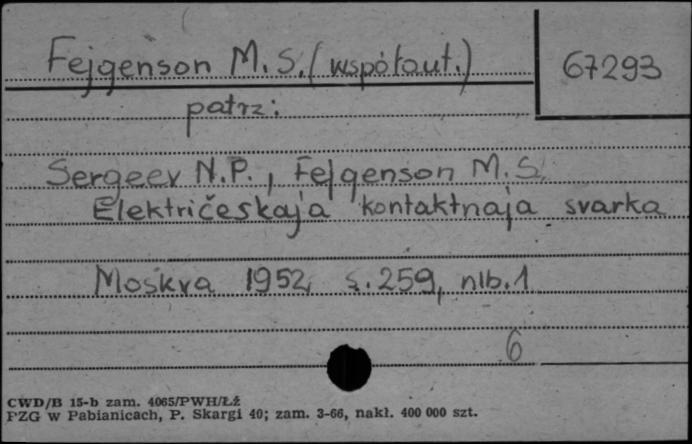 Fejgenson M. S. (współaut.)
67293
patrz:
Sergeev N.P., Fejgenson M.S.
Električeskaja kontaktnaja svarka
Moskva 1952, s. 259, nlb. 1
6
CWD/B 15-b zam. 4065/PWH/Łź
PZG w Pabianicach, P. Skargi 40; zam. 3-66, nakł. 400 000 szt.